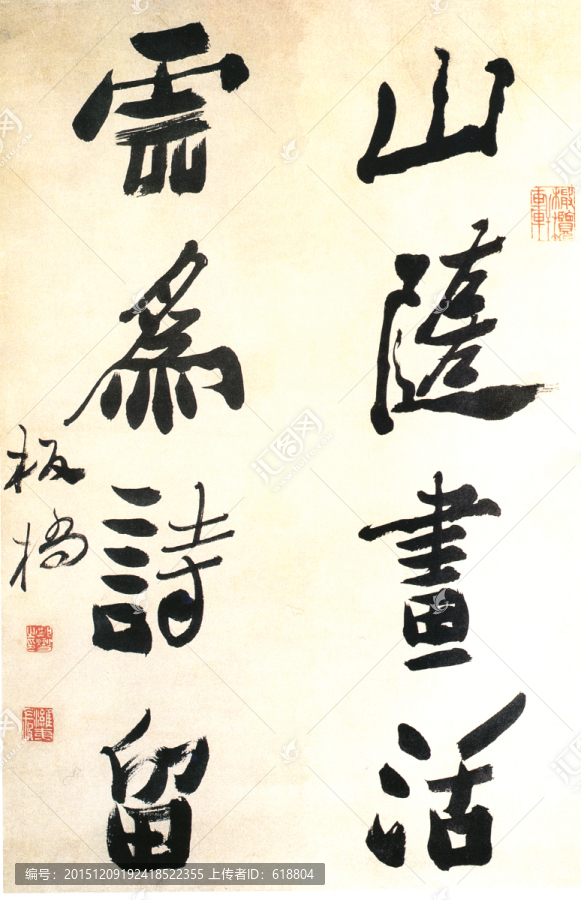 山隨畫活
雲爲詩留
板橋
橄欖軒
汇图网
编号：20151209192418522355 上传者ID：618804